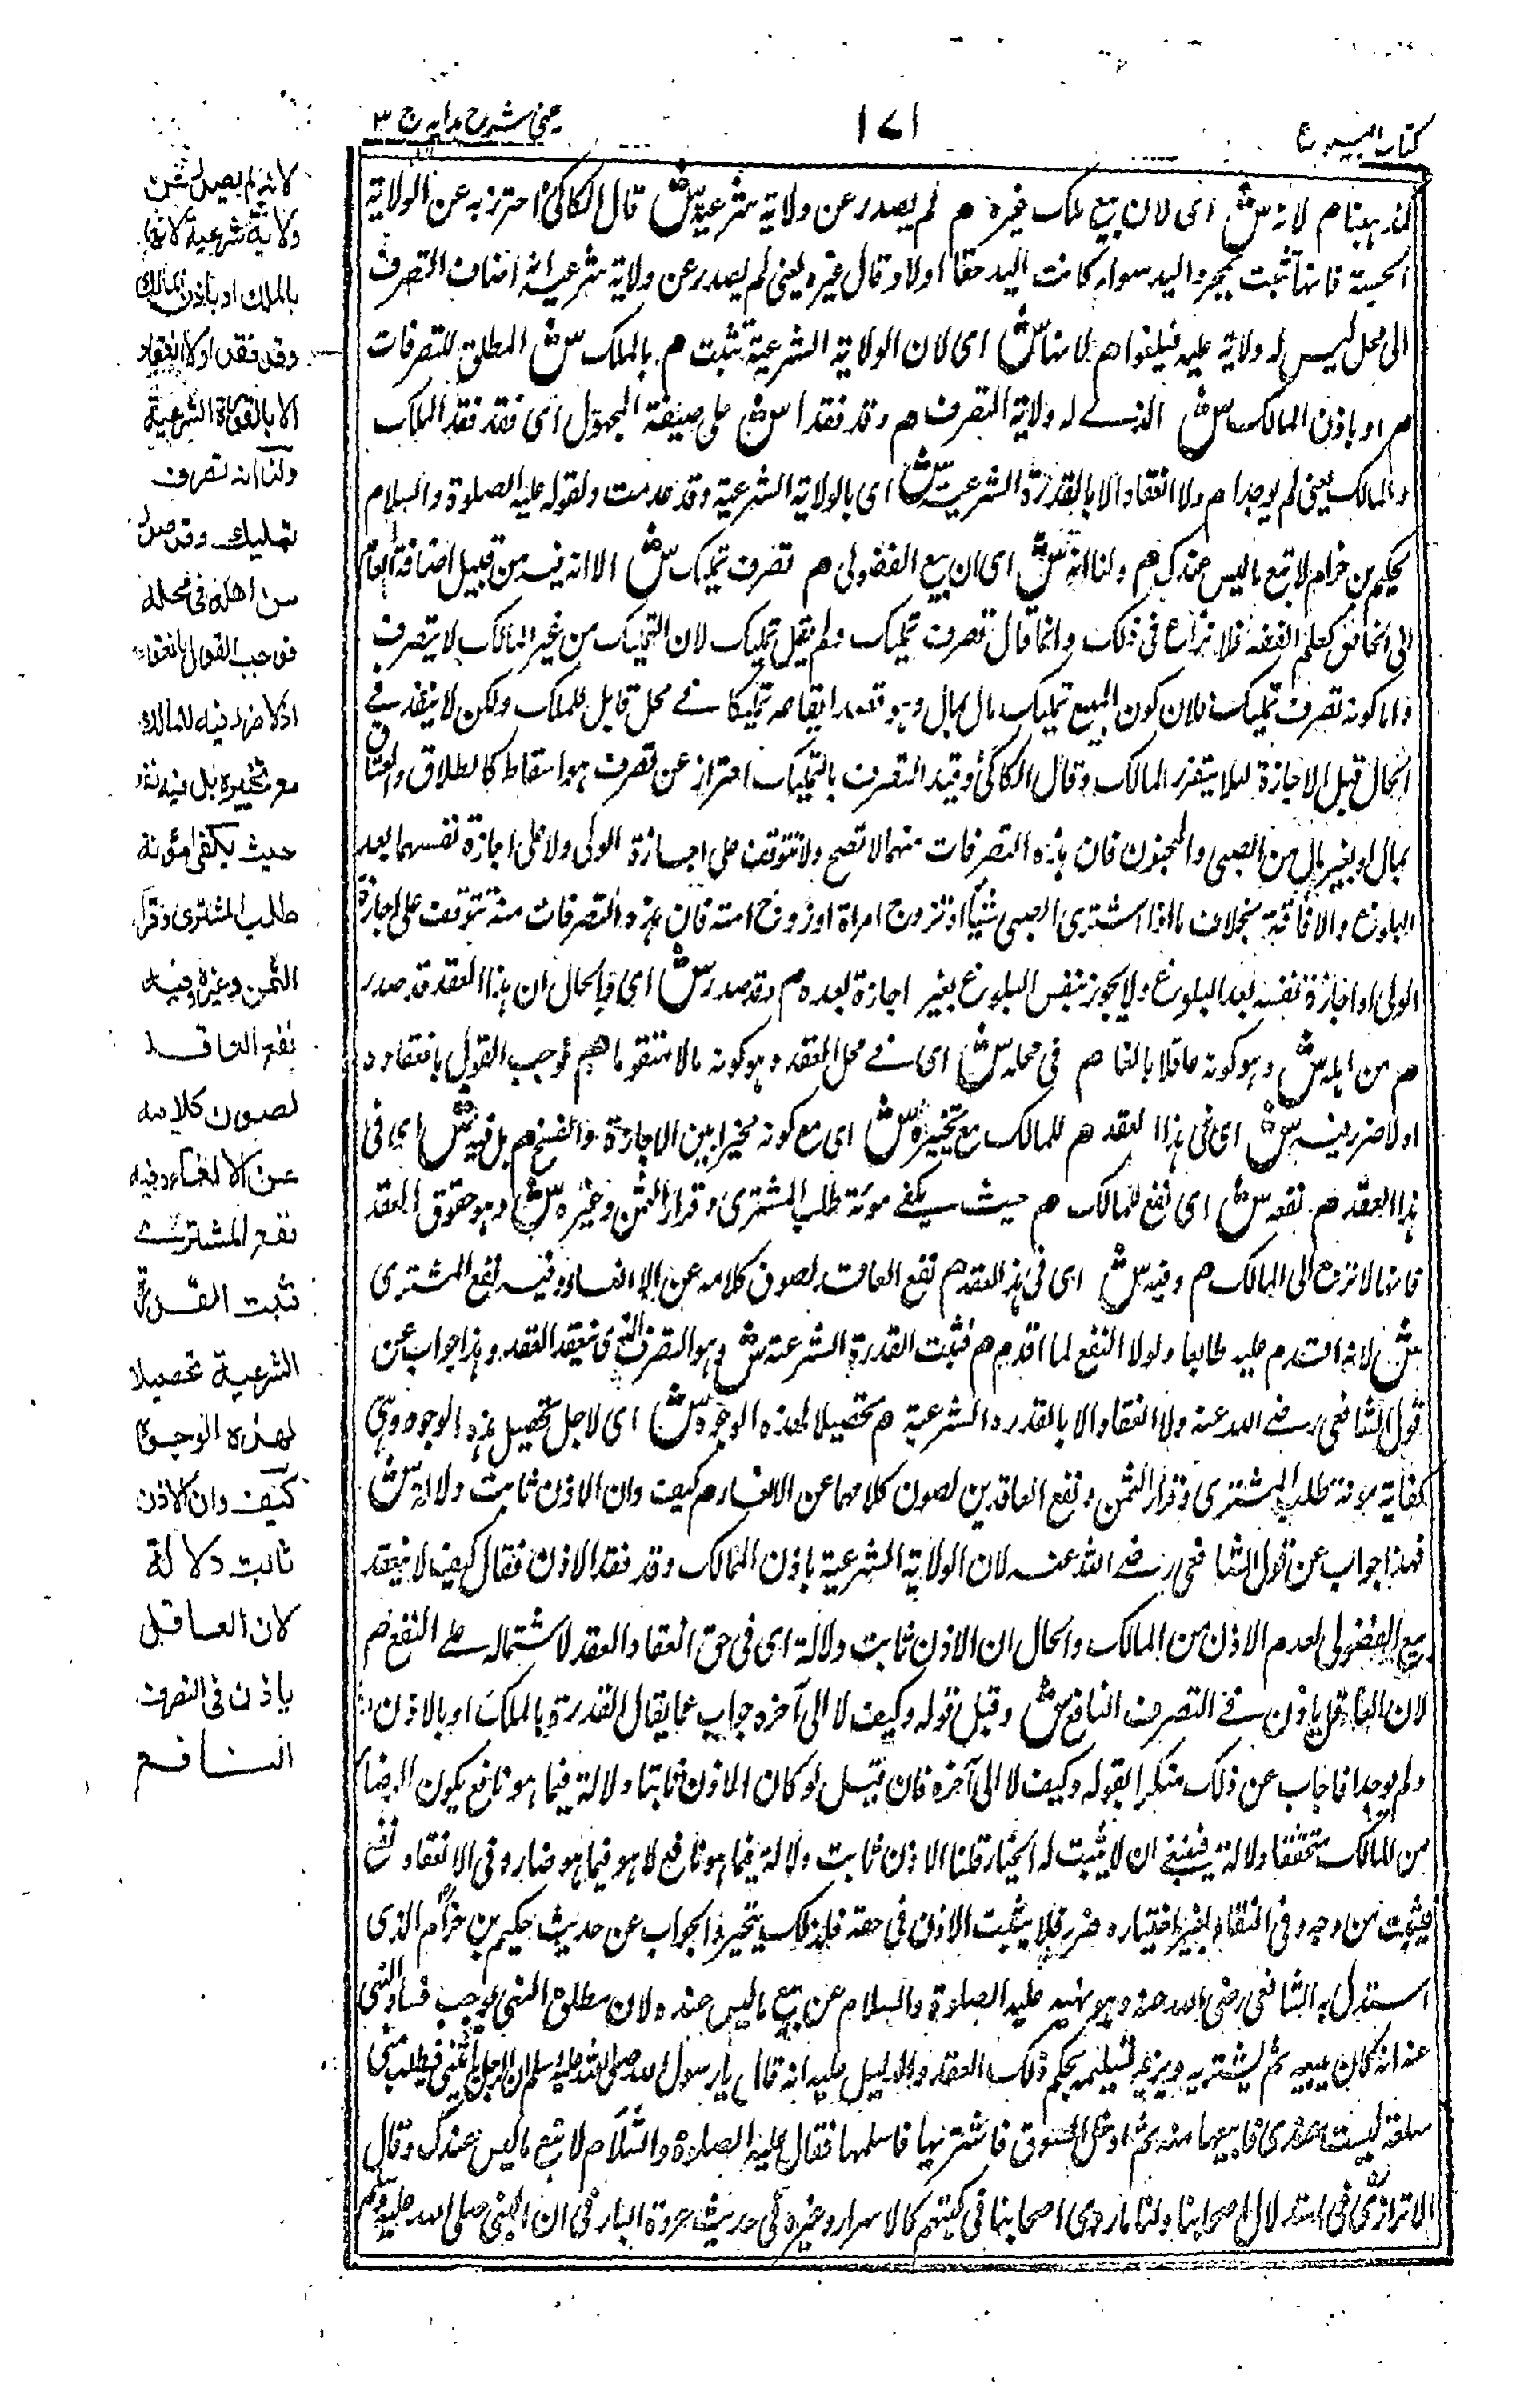 كتاب البيوع
١٧١
عيني شرح هدايه ج ٣
لمذهبنا م لانه ش اى لان بيع ملك غيره م لم يصدر عن ولاية شرعية ش قال الكاكي احترز به عن الولاية
الحسية فانها تثبت بمجرد اليد سواء كانت اليد حقا اولا وقال غيره يعنى لم يصدر عن ولاية شرعية انه اضاف التصرف
الى محل ليس له ولاية عليه فيلغوا هم لانها ش اى لان الولاية الشرعية تثبت م بالملك ش المطلق للتصرفات
م او باذن المالك ش الذى له ولاية التصرف هم وقد فقدا ش على صيغة المجهول اى فقد فقد الملك
والمالك يعنى لم يوجدا م ولا انعقاد الا بالقدرة الشرعية ش اى بالولاية الشرعية وقد عدمت ولقوله عليه الصلوة والسلام
لحكيم بن حزام لا تبع ما ليس عندك هم ولنا انه ش اى ان بيع الفضولى هم تصرف تمليك ش الا انه فيه من قبيل اضافة العام
الى الخاص كعلم الفقه فلا نزاع فى ذلك وانما قال تصرف تمليك ولم يقل تمليك لان التمليك من غير المالك لا يتصرف
واما كونه تصرف تمليك فلان كون المبيع تمليك مال بمال وهو قصد ايقاعه تمليكا فى محل قابل للملك ولكن لا ينفذ فى
الحال قبل الاجازة لئلا يتضرر المالك وقال الكاكي وقيد التصرف بالتمليك احتراز عن تصرف هو اسقاط كالطلاق والعتاق
بمال او بغير مال من الصبى والمجنون فان هذه التصرفات منهما لا تصح ولا تتوقف على اجازة الولى ولا على اجازة نفسهما بعد
البلوغ والافاقة بخلاف ما اذا اشترى الصبى شيئا او تزوج امراة او زوج امته فان هذه التصرفات منه تتوقف على اجازة
الولى او اجازة نفسه بعد البلوغ ولا يجوز بنفس البلوغ بغير اجازة بعده م وقد صدر ش اى والحال ان هذا العقد قد صدر
م من اهله ش وهو كونه عاقلا بالغا هم فى محله ش اى فى محل العقد وهو كونه مالا متقوما هم فوجب القول بانعقاده
اولا ضرر فيه ش اى فى هذا العقد هم للمالك مع تخييره ش اى مع كونه مخيرا بين الاجازة والفسخ هم بل فيه ش اى فى
هذا العقد هم نفعه ش اى نفع للمالك هم حيث يكفى مؤنة طلب المشترى وقرار الثمن وغيره ش وهو حقوق العقد
فانها لا ترجع الى المالك هم وفيه ش اى فى هذا العقد هم نفع العاقد لصون كلامه عن الالغاء وفيه نفع المشترى
ش لانه اقدم عليه طالبا ولولا النفع لما اقدم هم فثبت القدرة الشرعية ش وهو التصرف الذى ينعقد العقد وهذا جواب عن
قول الشافعى رضى الله عنه ولا انعقاد الا بالقدرة الشرعية هم تحصيلا لهذه الوجوه ش اى لاجل تحصيل هذه الوجوه وهى
كفاية مؤنة طلب المشترى وقرار الثمن ونفع العاقدين لصون كلامهما عن الالغاء م كيف وان الاذن ثابت دلالة ش
فهذا جواب عن قول الشافعى رضى الله عنه لان الولاية الشرعية باذن المالك وقد فقد الاذن فقال كيف لا ينعقد
بيع الفضولى لعدم الاذن من المالك والحال ان الاذن ثابت دلالة اى فى حق انعقاد العقد لاشتماله على النفع م
لان العاقل ياذن فى التصرف النافع ش وقيل قوله وكيف لا الى آخره جواب عما يقال القدرة بالملك او بالاذن
ولم يوجدا فاجاب عن ذلك منكرا بقوله وكيف لا الى آخره فان قيل لو كان الاذن ثابتا دلالة فيما هو نافع يكون الرضا
من المالك متحققا دلالة فينبغى ان لا يثبت له الخيار قلنا الاذن ثابت دلالة فيما هو نافع لا هو فيما هو ضار وفى الانعقاد نفع
فيثبت من وجه وفى النفاذ بغير اختياره ضرر فلا يثبت الاذن فى حقه فلذلك يتخير والجواب عن حديث حكيم بن حزام الذى
استدل به الشافعى رضى الله عنه وهو نهيه عليه الصلوة والسلام عن بيع ما ليس عنده لان مطلق النهى يوجب فساد النهى
عنه انه كان يبيعه ثم يشتريه ويسلمه بحكم ذلك العقد والدليل عليه انه قال يا رسول الله صلى الله عليه وسلم ان الرجل ياتينى فيطلب منى
سلعة ليست عندى فابيعها منه ثم ادخل السوق فاشتريها فاسلمها فقال عليه الصلوة والسلام لا تبع ما ليس عندك وقال
الاترازى فى استدلال اصحابنا ولنا ما روى اصحابنا فى كتبهم كالاسرار وغيره فى حديث عروة البارقى ان النبى صلى الله عليه وسلم
لانه لم يصدر عن
ولاية شرعية لانها
بالملك او باذن المالك
وقد فقدا ولا انعقاد
الا بالقدرة الشرعية
ولنا انه تصرف
تمليك وقد صدر
من اهله فى محله
فوجب القول بانعقاده
اذ لا ضرر فيه للمالك
مع تخييره بل فيه نفعه
حيث يكفى مؤنة
طلب المشترى وقرار
الثمن وغيره وفيه
نفع العاقد
لصون كلامه
عن الالغاء وفيه
نفع المشترى
فثبت القدرة
الشرعية تحصيلا
لهذه الوجوه
كيف وان الاذن
ثابت دلالة
لان العاقل
ياذن فى التصرف
النافع